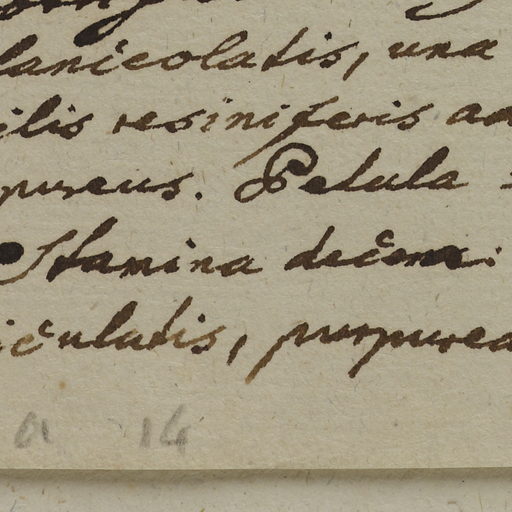 lanicolatis, una
ilis resiniferis ad
pureus. Petula
Stamina decem.
iculatis, purpurea
a 14